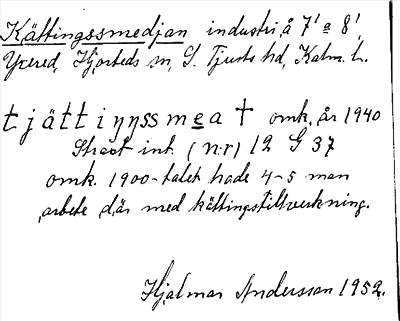 Kättingssmedjan industri å 7¹ a 8¹,
Yxered, Hjorteds sn, S. Tjusts hd, Kalm. l.
tjättiŋŋssmea † omkr. år 1940
int. (n:r) 12 G 37
omk. 1900-talet hade 4-5 man
arbete där med kättingstillverkning.
Hjalmar Andersson 1952.